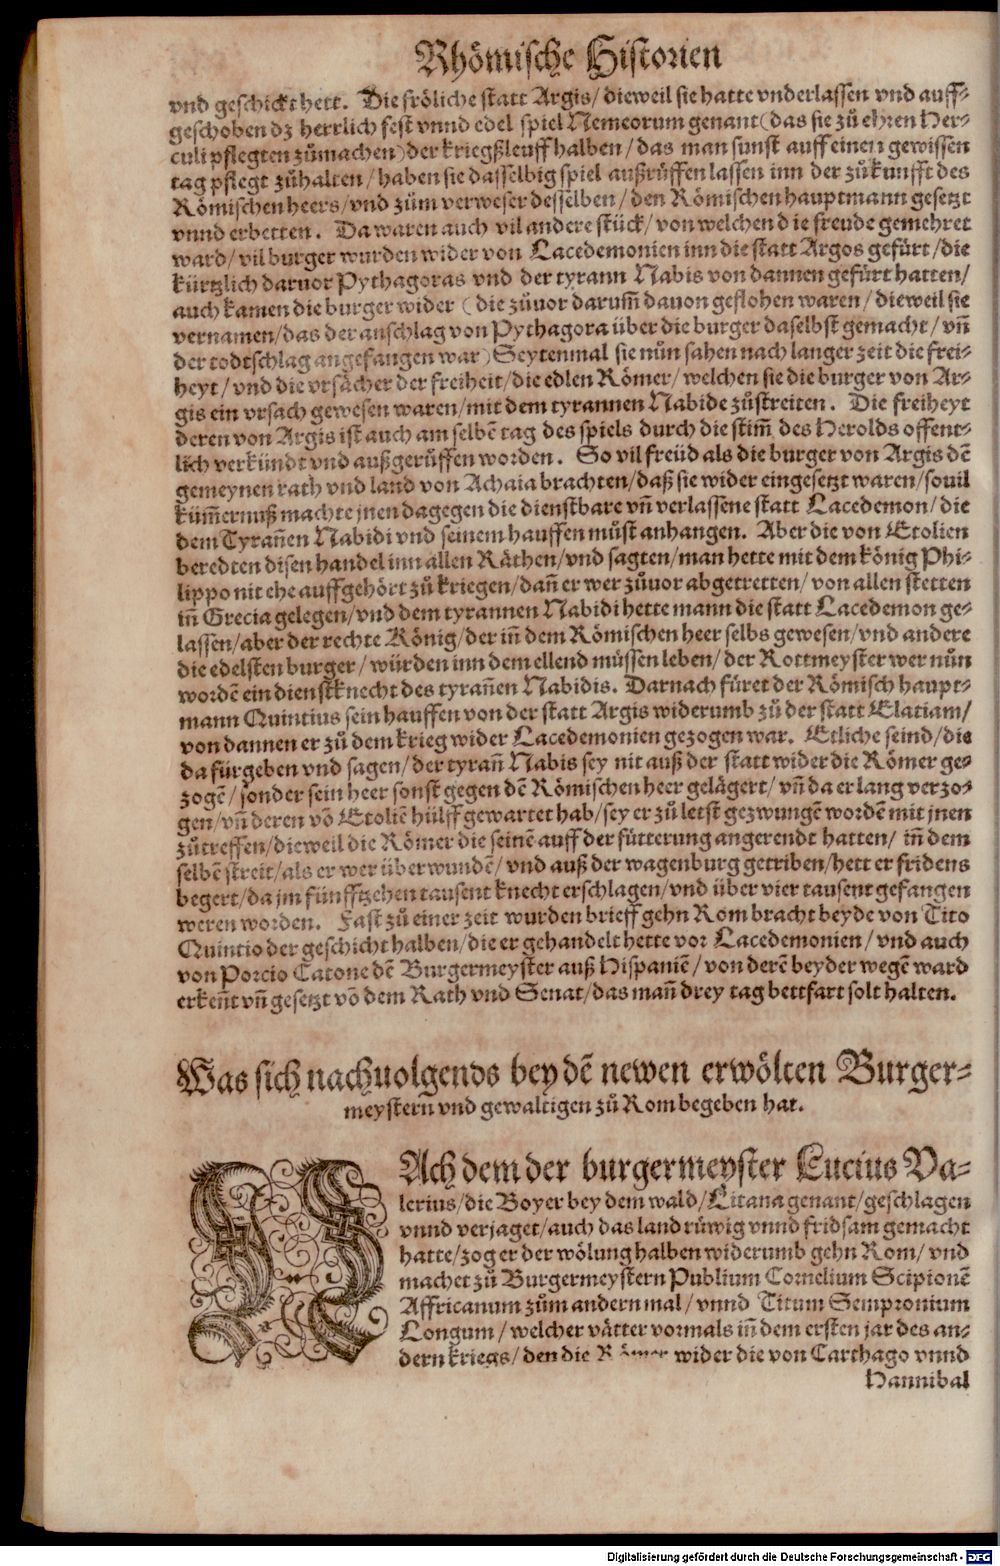 Rhömische Historien
vnd geschickt hett. Die fröliche statt Argis/ dieweil sie hatte vnderlassen vnd auff-
geschoben dz herrlich fest vnnd edel spiel Nemeorum genant (das sie zů ehren Her-
culi pflegten zůmachen) der kriegßleuff halben/ das man sunst auff einen gewissen
tag pflegt zůhalten/ haben sie dasselbig spiel außrüffen lassen inn der zůkunfft des
Römischen heers/ vnd zům verweser desselben/ den Römischen hauptmann gesetzt
vnnd erbetten. Da waren auch vil andere stück/ von welchen die freude gemehret
ward/ vil burger wurden wider von Lacedemonien inn die statt Argos gefürt/ die
kürtzlich daruor Pythagoras vnd der tyrann Nabis von dannen gefürt hatten/
auch kamen die burger wider (die zůuor darum̃ dauon geflohen waren/ dieweil sie
vernamen/ das der anschlag von Pythagora über die burger daselbst gemacht/ vñ
der todtschlag angefangen war) Seytenmal sie nůn sahen nach langer zeit die frei-
heyt/ vnd die vrsächer der freiheit/ die edlen Römer/ welchen sie die burger von Ar-
gis ein vrsach gewesen waren/ mit dem tyrannen Nabide zůstreiten. Die freiheyt
deren von Argis ist auch am selbẽ tag des spiels durch die stim̃ des Herolds offent-
lich verkündt vnd außgerüffen worden. So vil freüd als die burger von Argis dẽ
gemeynen rath vnd land von Achaia brachten/ daß sie wider eingesetzt waren/ souil
küm̃ernuß machte jnen dagegen die dienstbare vñ verlassene statt Lacedemon/ die
dem Tyrañen Nabidi vnd seinem hauffen můst anhangen. Aber die von Etolien
beredten disen handel inn allen Räthen/ vnd sagten/ man hette mit dem könig Phi-
lippo nit ehe auffgehört zů kriegen/ dañ er wer zůuor abgetretten/ von allen stetten
iñ Grecia gelegen/ vnd dem tyrannen Nabidi hette mann die statt Lacedemon ge-
lassen/ aber der rechte König/ der iñ dem Römischen heer selbs gewesen/ vnd andere
die edelsten burger/ würden inn dem ellend müssen leben/ der Rottmeyster wer nůn
wordẽ ein dienstknecht des tyrañen Nabidis. Darnach füret der Römisch haupt-
mann Quintius sein hauffen von der statt Argis widerumb zů der statt Elatiam/
von dannen er zů dem krieg wider Lacedemonien gezogen war. Etliche seind/ die
da fürgeben vnd sagen/ der tyrañ Nabis sey nit auß der statt wider die Römer ge-
zogẽ/ sonder sein heer sonst gegen dẽ Römischen heer gelägert/ vñ da er lang verzo-
gen/ vñ deren võ Etoliẽ hülff gewartet hab/ sey er zů letst gezwungẽ wordẽ mit jnen
zůtreffen/ dieweil die Römer die seinẽ auff der fütterung angerendt hatten/ iñ dem
selbẽ streit/ als er wer überwundẽ/ vnd auß der wagenburg getriben/ hett er fridens
begert/ da jm fünfftzehen tausent knecht erschlagen/ vnd über vier tausent gefangen
weren worden. Fast zů einer zeit wurden brieff gehn Rom bracht beyde von Tito
Quintio der geschicht halben/ die er gehandelt hette vor Lacedemonien/ vnd auch
von Porcio Catone dẽ Burgermeyster auß Hispaniẽ/ von derẽ beyder wegẽ ward
erkeñt vñ gesetzt võ dem Rath vnd Senat/ das mañ drey tag bettfart solt halten.
Was sich nachuolgends bey dẽ newen erwölten Burger-
meystern vnd gewaltigen zů Rom begeben hat.
NAch dem der burgermeyster Lucius Va-
lerius/ die Boyer bey dem wald/ Litana genant/ geschlagen
vnnd verjaget/ auch das land rüwig vnnd fridsam gemacht
hatte/ zog er der wölung halben widerumb gehn Rom/ vnd
machet zů Burgermeystern Publium Cornelium Scipionẽ
Affricanum zům andern mal/ vnnd Titum Sempronium
Longum/ welcher vätter vormals iñ dem ersten jar des an-
dern kriegs/ den die Römer wider die von Carthago vnnd
Hannibal
Digitalisierung gefördert durch die Deutsche Forschungsgemeinschaft - DFG